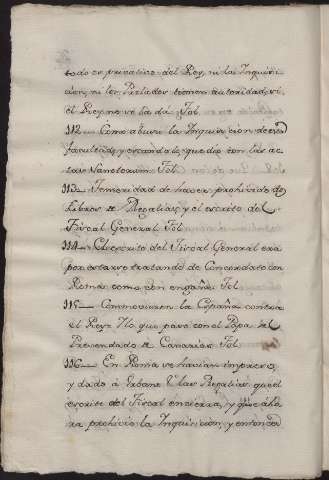 todo es privativo del Rey, ni la Inquisi-
cion, ni los Prelados tienen autoridad, si
el Rey no se la dá. Fol.
112 Como abusó la Inquisicion de esta
facultad, y escandalo, que dio con las ac-
tas Sanctorum. Fol.
113 Temeridad de haver prohivido los
Libros de Regalias, y el escrito del
Fiscal General Fol.
114 El escrito del Fiscal General era
por estarse tratando de Concordato con
Roma como con engaño. Fol.
115 Commovieron la España contra
el Rey: Y lo que pasó con el Papa el
Prevendado de Canarias. Fol.
116 En Roma se havian impreso,
y dado á Urbano 8º las Regalias que el
escrito del Fiscal encierra, y que aho-
ra prohivió la Inquisicion, y entonces